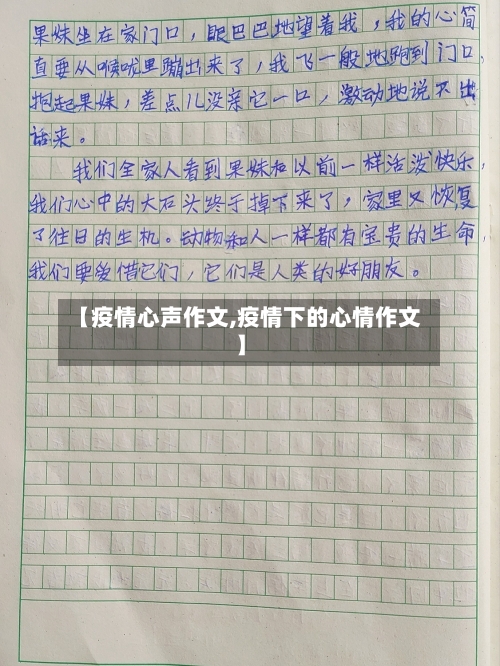 果妹坐在家门口，眼巴巴地望着我，我的心简
直要从喉咙里蹦出来了，我飞一般地跑到门口，
抱起果妹，差点儿没亲它一口，激动地说不出
话来。
我们全家人看到果妹和以前一样活泼快乐，
我们心中的大石头终于掉下来了，家里又恢复
了往日的生机。动物和人一样都有宝贵的生命，
我们要爱惜它们，它们是人类的好朋友。
【疫情心声作文,疫情下的心情作文
】